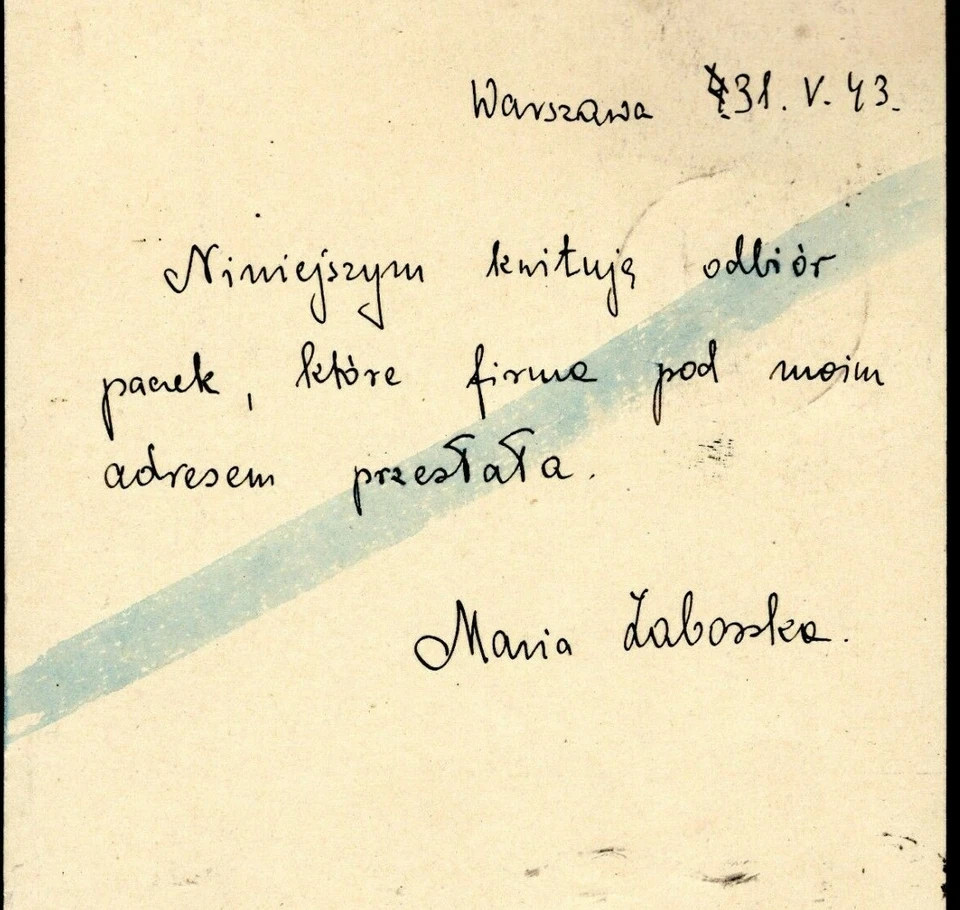 Warszawa 31. V. 43.
Niniejszym kwituję odbiór
paczek, które firma pod moim
adresem przesłała.
Maria Zaborska.